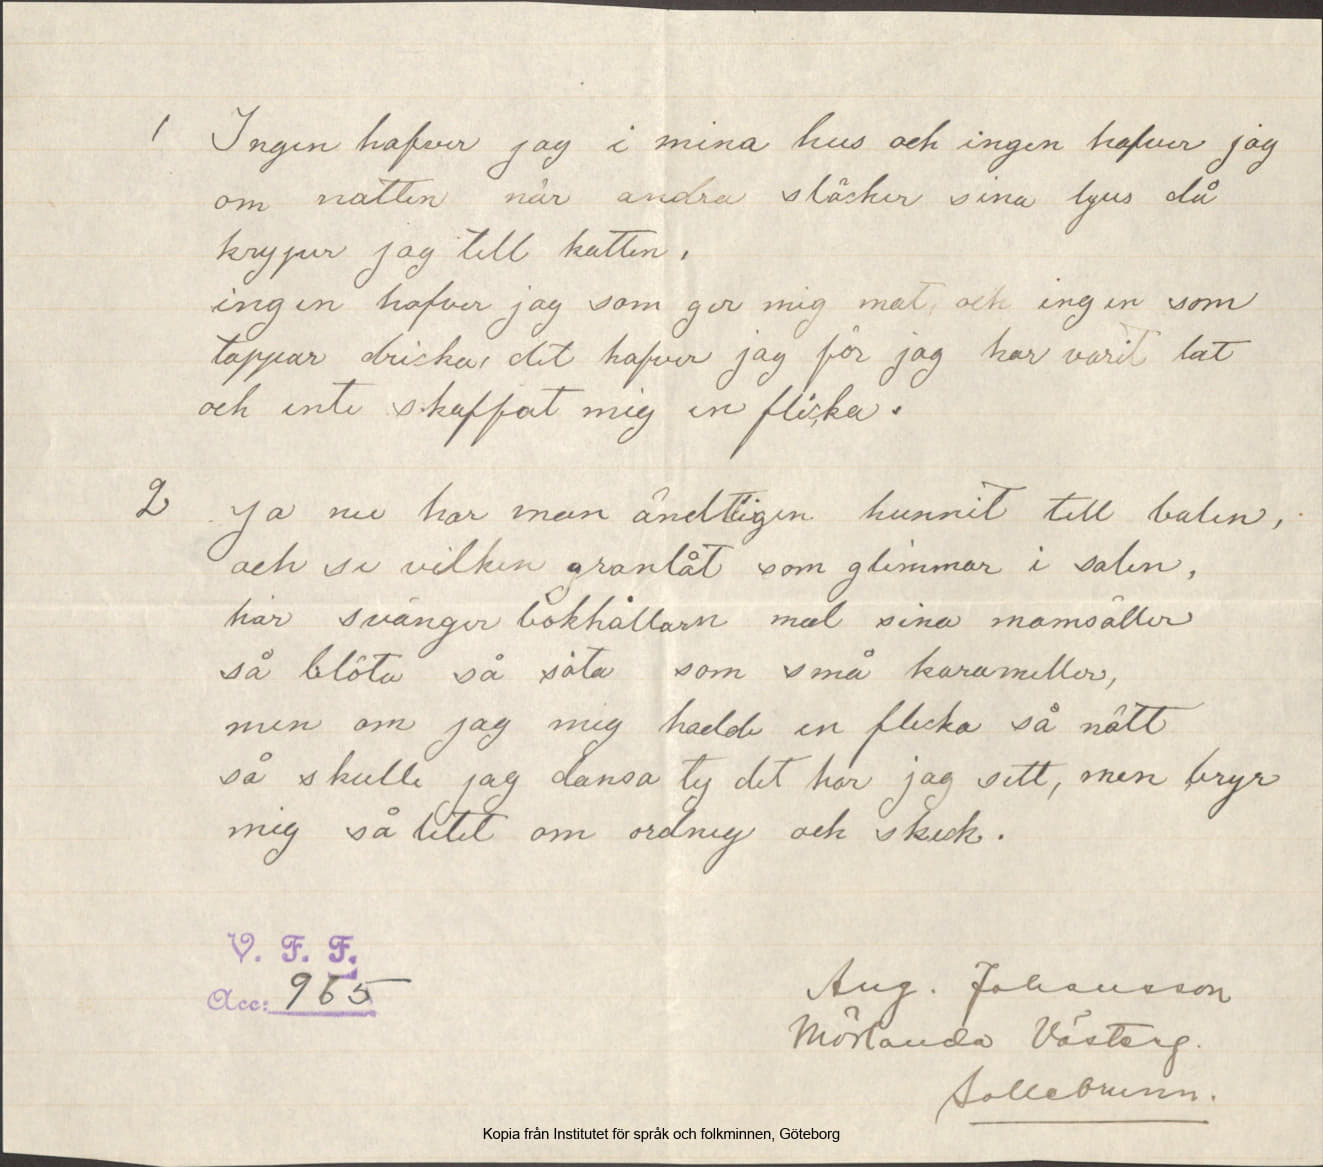 1 Ingen hafver jag i mina hus och ingen hafver jag
om natten när andra släcker sina ljus då
kryper jag till katten,
ingen hafver jag som ger mig mat, och ingen som
tappar dricka, det hafver jag för jag har varit lat
och inte skaffat mig en flicka.
2 Ja nu har man ändtligen hunnit till balen,
och se vilken granlåt som glimmar i salen,
här svänger bokhållarn med sina mamsäller
så blöta så söta som små karameller,
men om jag mig hadde en flicka så nätt
så skulle jag dansa ty det har jag sett, men bryr
mig så litet om ordnig och skick.
V. F. F.
Acc: 965
Aug. Johansson
Mörlanda Västerg.
Sollebrunn.
Kopia från Institutet för språk och folkminnen, Göteborg